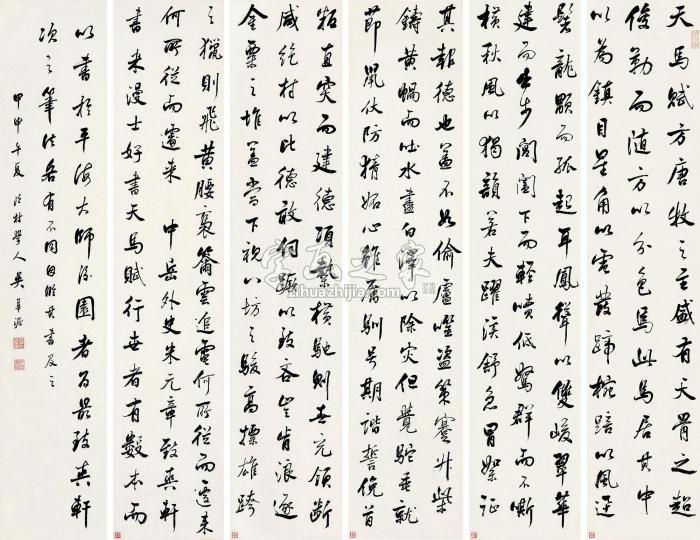 天馬賦方唐牧之至盛有天骨之超
俊勒而隨方以分色焉此馬居其中
以為鎮目星角以電發蹄椀踣以風迮
鬐龍顒而孤起耳鳳聳以雙峻翠華
建而出步閶闔下而輕噴低駑群而不嘶
橫秋風以獨韻若夫躍溪舒急冒絮征
其報德也蓋不如偷盧噬盜策蹇升柴
鑄黃蝸而吐水畫白澤以除災但覺駝垂就
節鼠伏防猜妬心雖厲馴号期諧誓俛首
直突而建德項縶橫馳則世充領斷
咸絕材以比德敢伺蹶以致吝豈肯浪逐
金粟之堆蓋當下視八坊之駿高標雄跨
之獵則飛黃腰裊躡雲追電何所從而遽來
何所從而遽來 中岳外史米元章致爽軒
書 米漫士好書天馬賦行世者有數本而
以書於平海大師後園者為最致爽軒
次之筆法各有不同因臨其書及之
甲申年夏 村學人吳華源
zihuazhijie.com